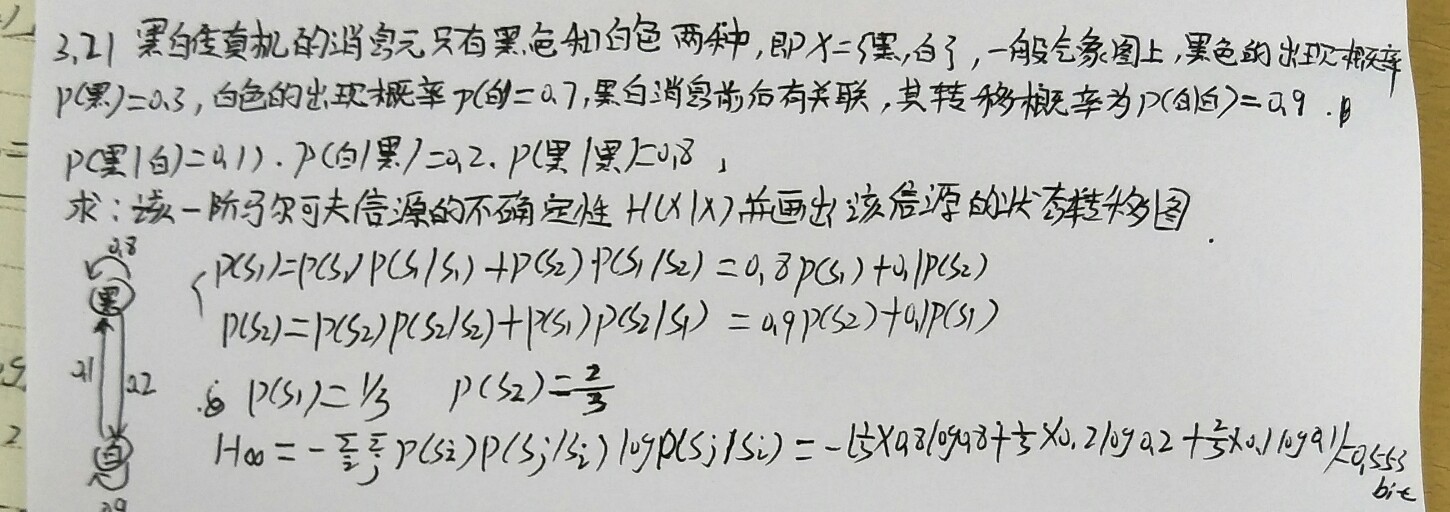 3.21 黑白传真机的消息元只有黑色和白色两种,即X={黑,白},一般气象图上,黑色的出现概率
P(黑)=0.3,白色的出现概率P(白)=0.7,黑白消息前后有关联,其转移概率为P(白|白)=0.9.
P(黑|白)=0.1).P(白|黑)=0.2.P(黑|黑)=0.8,
求:该一阶马尔可夫信源的不确定性H(X|X)并画出该信源的状态转移图.
0.8
黑
0.1 0.2
白
0.9
P(S₁)=P(S₁)P(S₁/S₁)+P(S₂)·P(S₁/S₂)=0.8P(S₁)+0.1P(S₂)
P(S₂)=P(S₂)P(S₂/S₂)+P(S₁)P(S₂/S₁)=0.9P(S₂)+0.1P(S₁)
P(S₁)=1/3 P(S₂)=2/3
H∞=-ΣΣP(Si)P(Sj/Si)logP(Sj/Si)=-(1/3×0.8log0.8+1/3×0.2log0.2+2/3×0.1log0.1)=0.553
bit